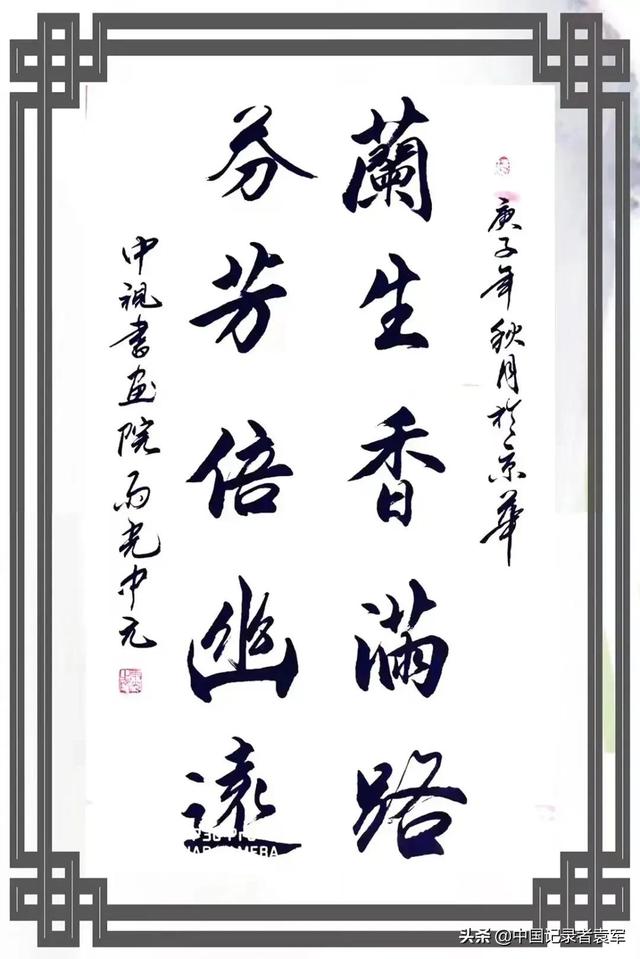 庚子年秋月於京華
蘭生香滿路
芬芳倍幽遠
中視書画院
头条 @中国记录者袁军